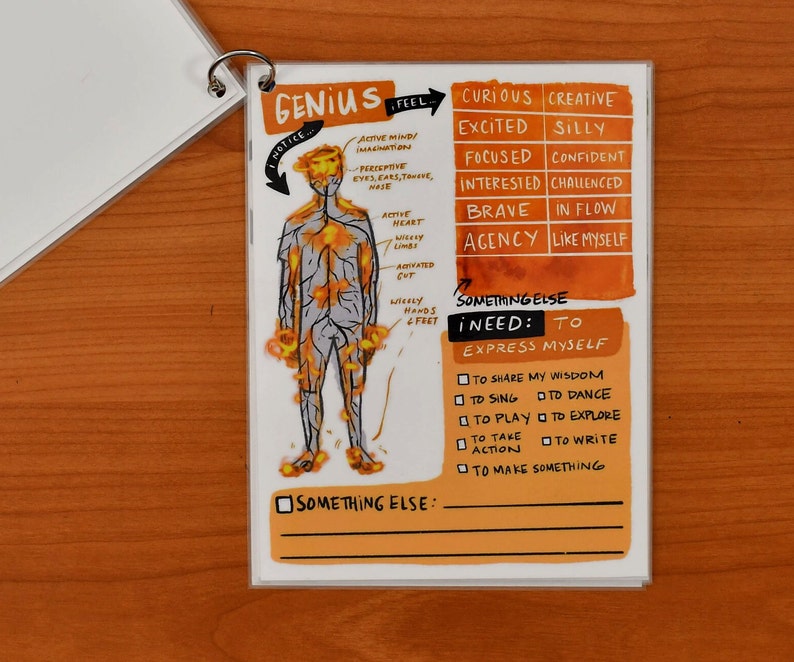 GENIUS
I FEEL...
I NOTICE...
ACTIVE MIND/
IMAGINATION
PERCEPTIVE
EYES, EARS, TONGUE,
NOSE
ACTIVE
HEART
WIGGLY
LIMBS
ACTIVATED
GUT
WIGGLY
HANDS
& FEET
CURIOUS CREATIVE
EXCITED SILLY
FOCUSED CONFIDENT
INTERESTED CHALLENGED
BRAVE IN FLOW
AGENCY LIKE MYSELF
SOMETHING ELSE
I NEED: TO
EXPRESS MYSELF
TO SHARE MY WISDOM
TO SING TO DANCE
TO PLAY TO EXPLORE
TO TAKE
ACTION TO WRITE
TO MAKE SOMETHING
SOMETHING ELSE: